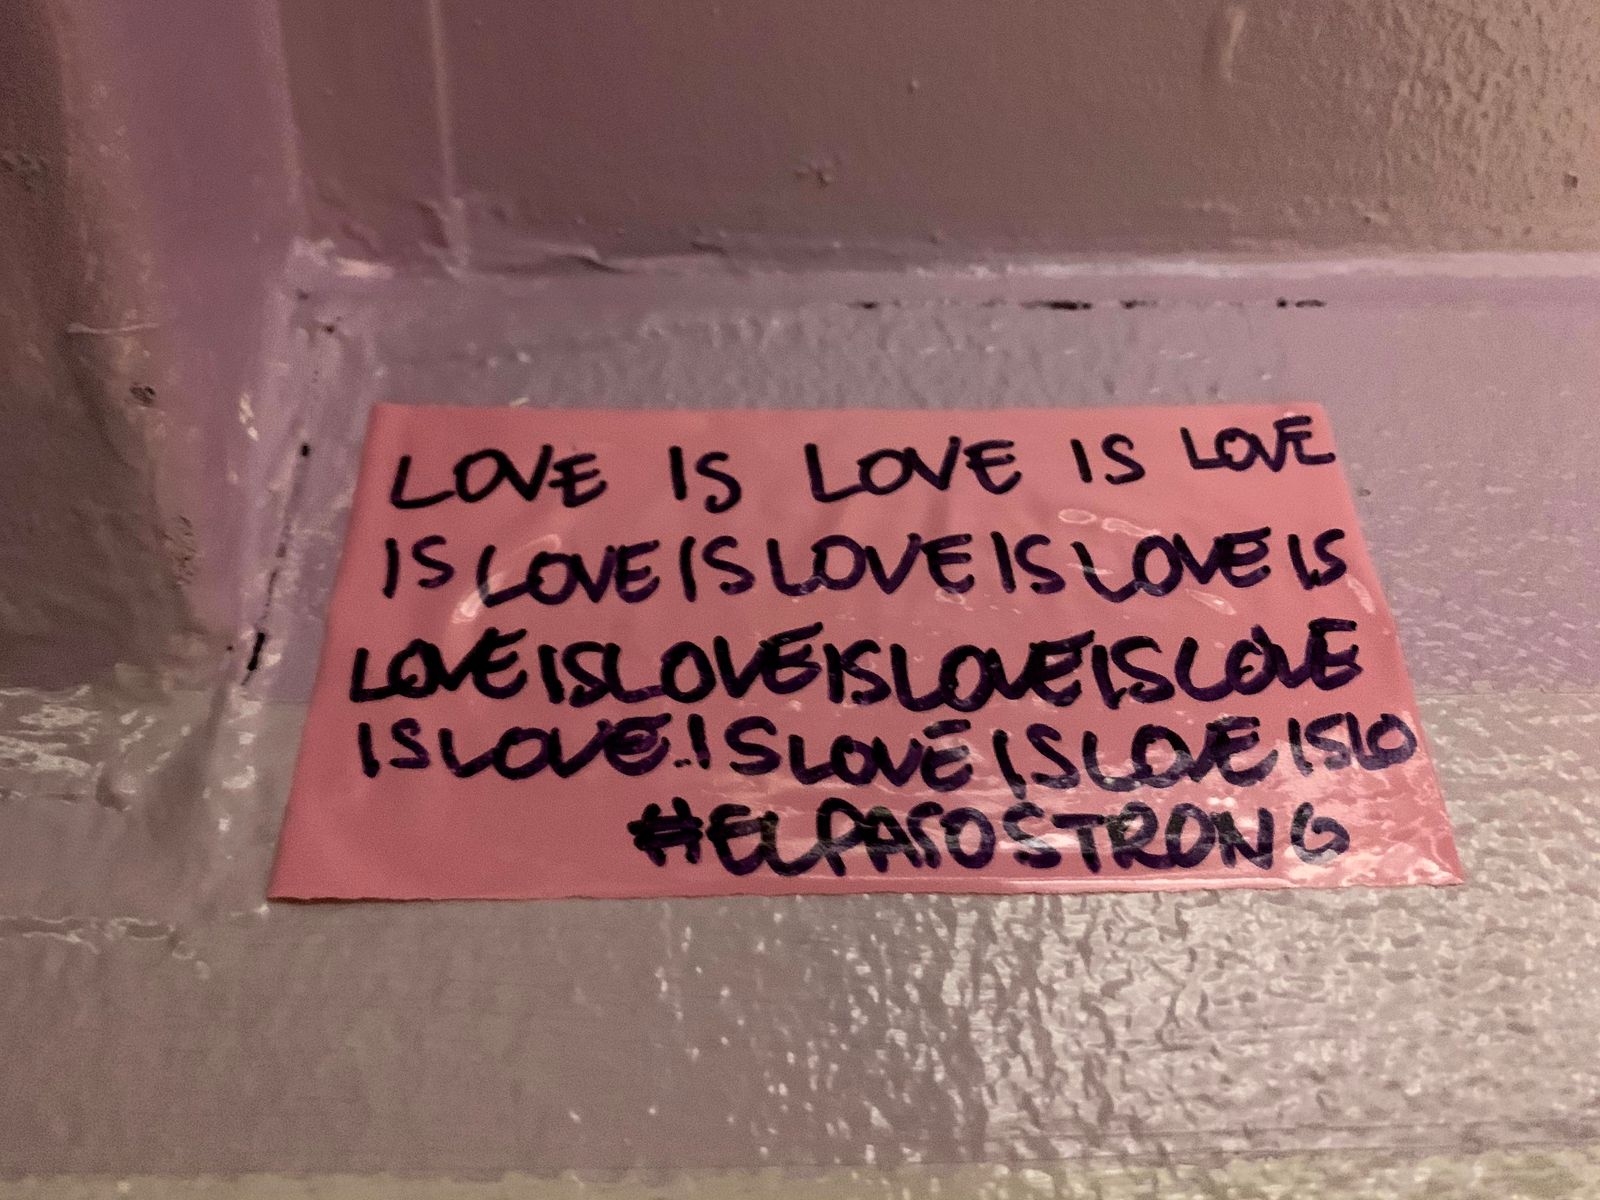 LOVE IS LOVE IS LOVE
IS LOVE IS LOVE IS LOVE IS
LOVE IS LOVE IS LOVE IS LOVE
IS LOVE.. IS LOVE IS LOVE IS LO
#ELPASOSTRONG